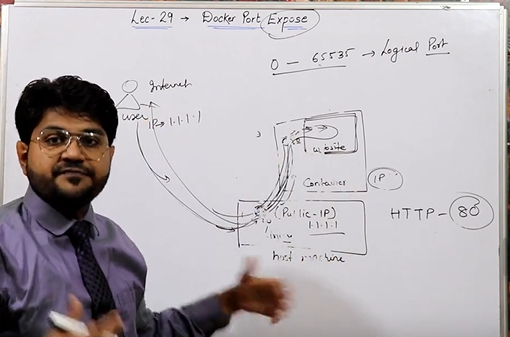 Lec-29 → Docker Port Expose
0 - 65535 → Logical Port
Internet
user
IP→ 1.1.1.1
website
Container
IP
HTTP - 80
(Public-IP)
1.1.1.1
host machine